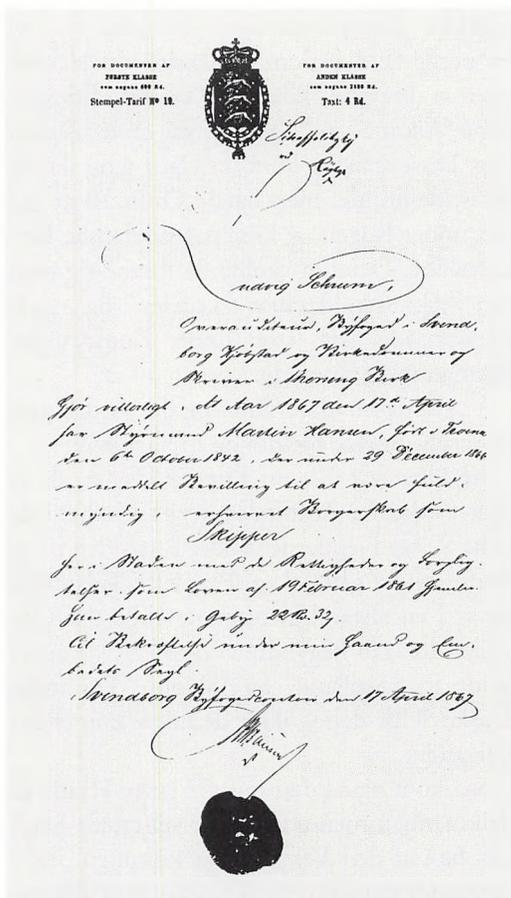 FOR DOCUMENTER AF
FØRSTE KLASSE
som angaae 600 Rd.
Stempel-Tarif Nº 19.
FOR DOCUMENTER AF
ANDEN KLASSE
som angaae 2100 Rd.
Taxt: 4 Rd.
udvig Schrum,
Overauditeur, Byfoged i Svend-
borg Kjøbstad og Birkedommer og
Skriver i Thorseng Birk
Gjør vitterligt, At Aar 1867 den 17de April
har Styrmand Martin Hansen, født i
den 6te October 1842, der under 29 December 1866
er meddelt Bevilling til at være fuld-
myndig, erhvervet Borgerskab som
Skipper
her i Staden med de Rettigheder og Forplig-
telser som Loven af 19 Februar 1861 hjemler.
Han betalte i Gebyr 22 Rd. 32
Til Bekræftelse under min Haand og Em-
bedets Segl.
Svendborg Byfogedcontor den 17 April 1867